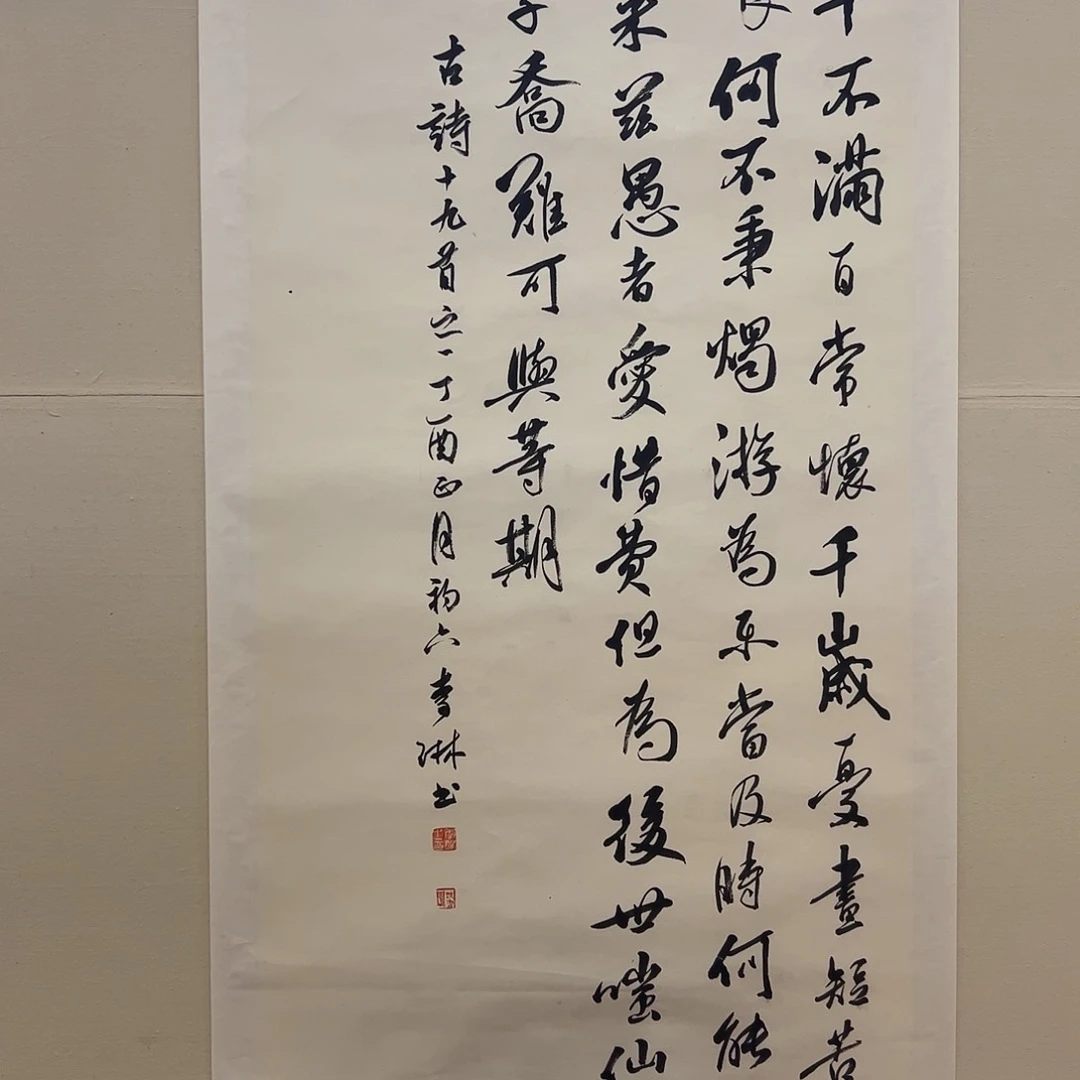 年不滿百常懷千歲憂晝短苦
長何不秉燭游為樂當及時何能
來茲愚者愛惜費但為後世嗤仙
子喬難可與等期
古詩十九首之一丁酉正月初六李琳書